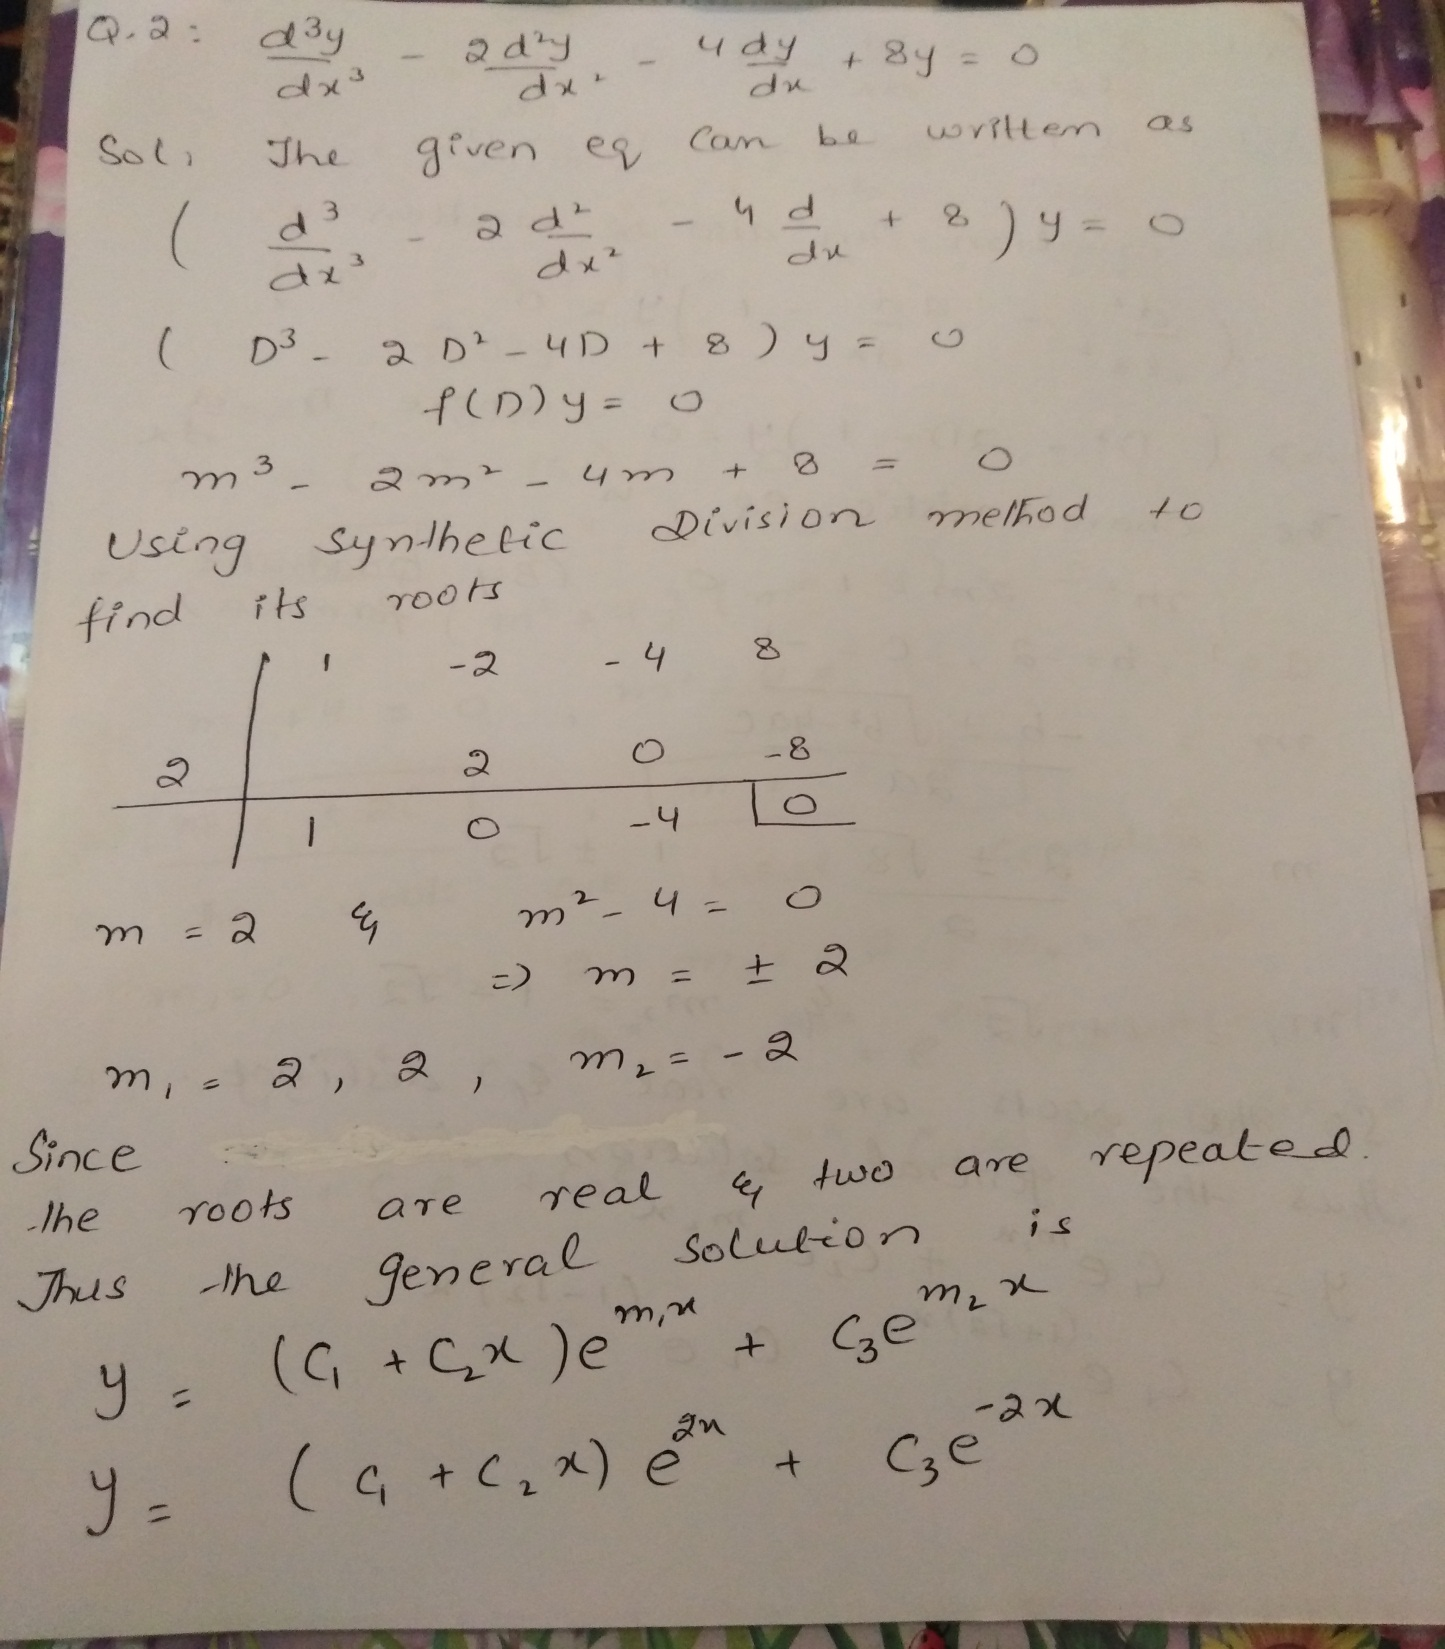 Q.2: d³y/dx³ - 2d²y/dx² - 4dy/dx + 8y = 0
Sol, The given eq can be written as
( d³/dx³ - 2 d²/dx² - 4 d/dx + 8 ) y = 0
( D³ - 2D² - 4D + 8 ) y = 0
f(D)y = 0
m³ - 2m² - 4m + 8 = 0
Using synthetic Division method to
find its roots
1 -2 -4 8
2 2 0 -8
1 0 -4 0
m = 2 & m² - 4 = 0
=> m = ± 2
m₁ = 2, 2, m₂ = -2
Since
the roots are real & two are repeated.
Thus the general solution is
y = (C₁ + C₂x)e^m₁x + C₃e^m₂x
y = (C₁ + C₂x)e^2x + C₃e^-2x